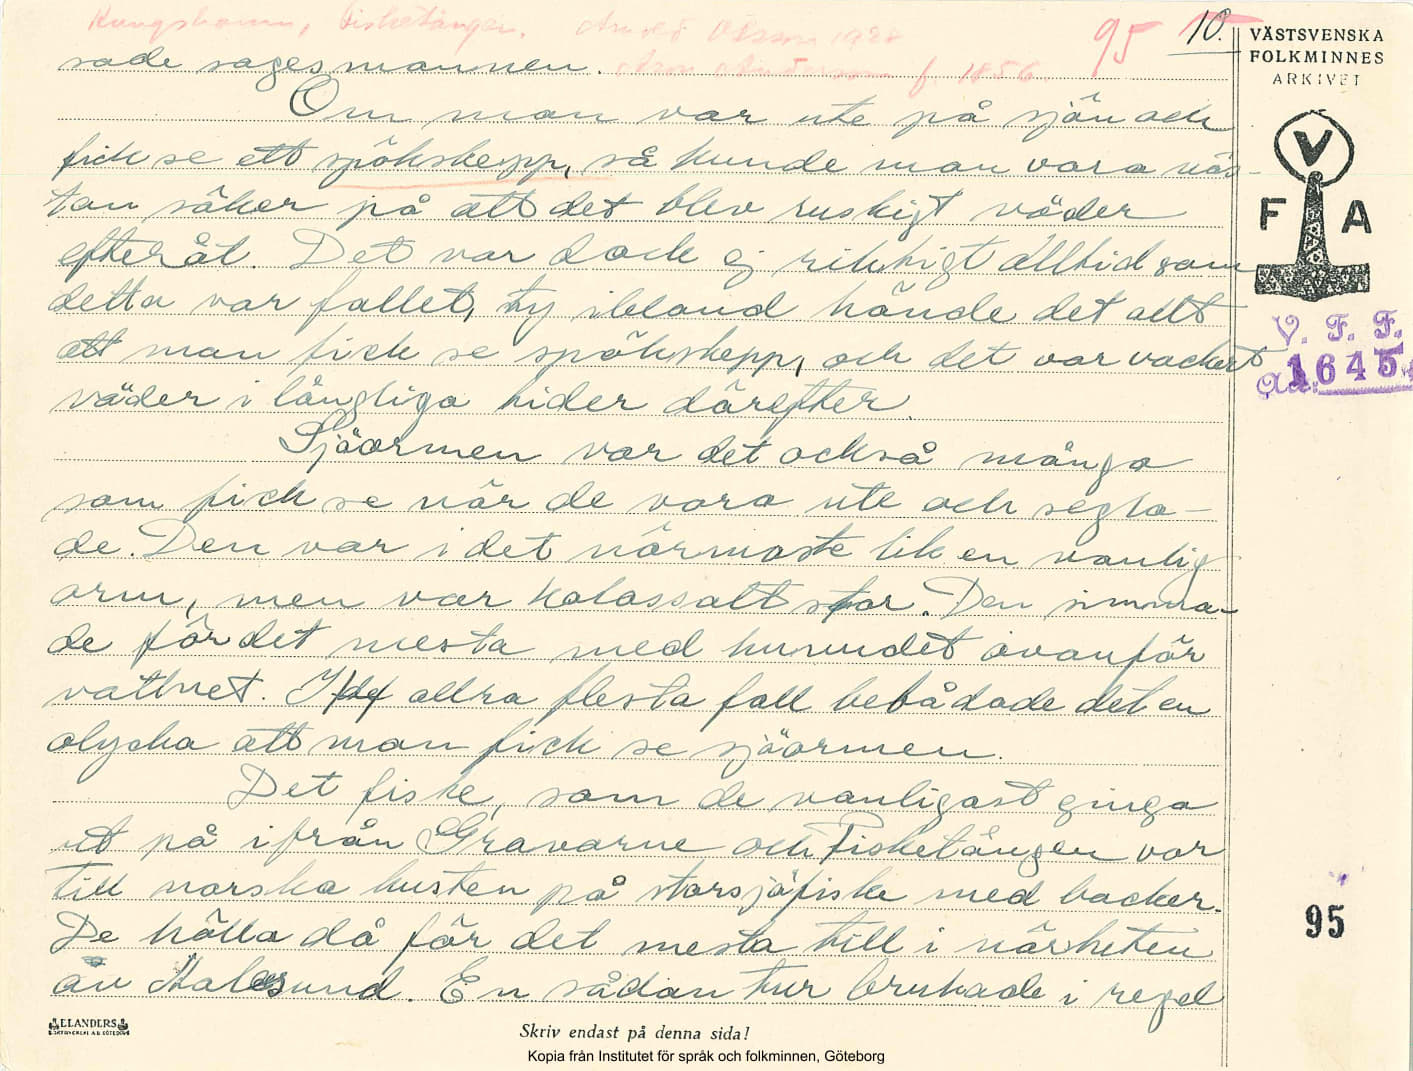 Kungshamn, Fisketången. Arnold Olsson 1928
Aron Andersson f. 1856.
95
10.
VÄSTSVENSKA
FOLKMINNES
ARKIVET
V
F A
V. F. F.
1645
95
sade sagesmannen.
Om man var ute på sjön och
fick se ett spökskepp, så kunde man vara näs-
tan säker på att det blev ruskigt väder
efteråt. Det var dock ej riktigt alltid som
detta var fallet, ty ibland hände det att
att man fick se spökskepp, och det var vackert
väder i långliga tider därefter.
Sjöormen var det också många
som fick se när de voro ute och segla-
de. Den var i det närmaste lik en vanlig
orm, men var kolossalt stor. Den simma-
de för det mesta med huvudet ovanför
vattnet. I de allra flesta fall bebådade det en
olycka att man fick se sjöormen.
Det fiske, som de vanligast gingo
ut på ifrån Gravarne och Fisketången var
till norska kusten på storsjöfiske med backor.
De höllo då för det mesta till i närheten
av Ålesund. En sådan tur brukade i regel
ELANDERS
Skriv endast på denna sida!
Kopia från Institutet för språk och folkminnen, Göteborg